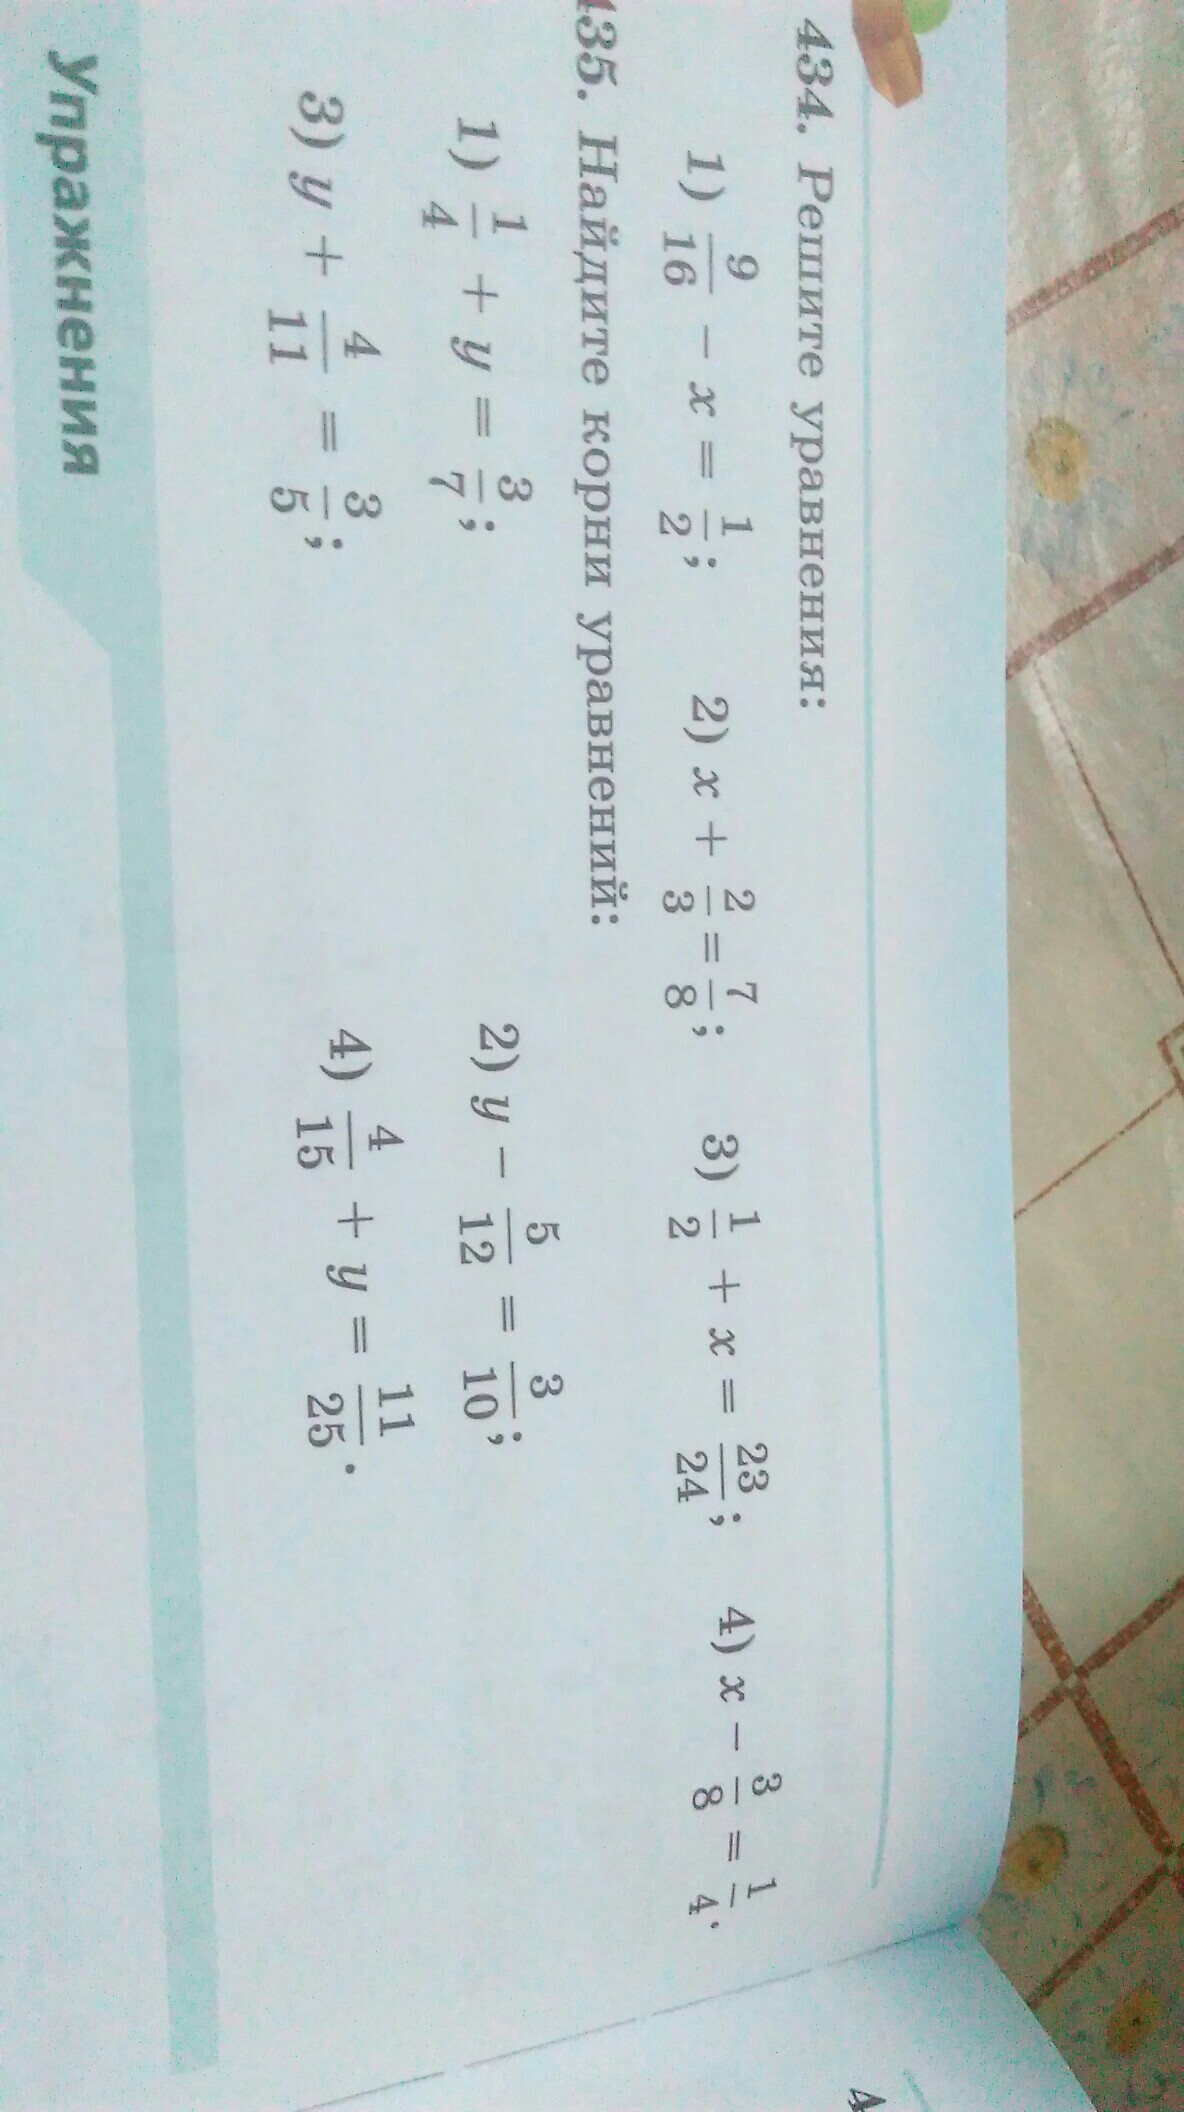 434. Решите уравнения:
1) 9/16 − x = 1/2; 2) x + 2/3 = 7/8; 3) 1/2 + x = 23/24; 4) x − 3/8 = 1/4.
435. Найдите корни уравнений:
1) 1/4 + y = 3/7; 2) y − 5/12 = 3/10;
3) y + 4/11 = 3/5; 4) 4/15 + y = 11/25.
Упражнения
4